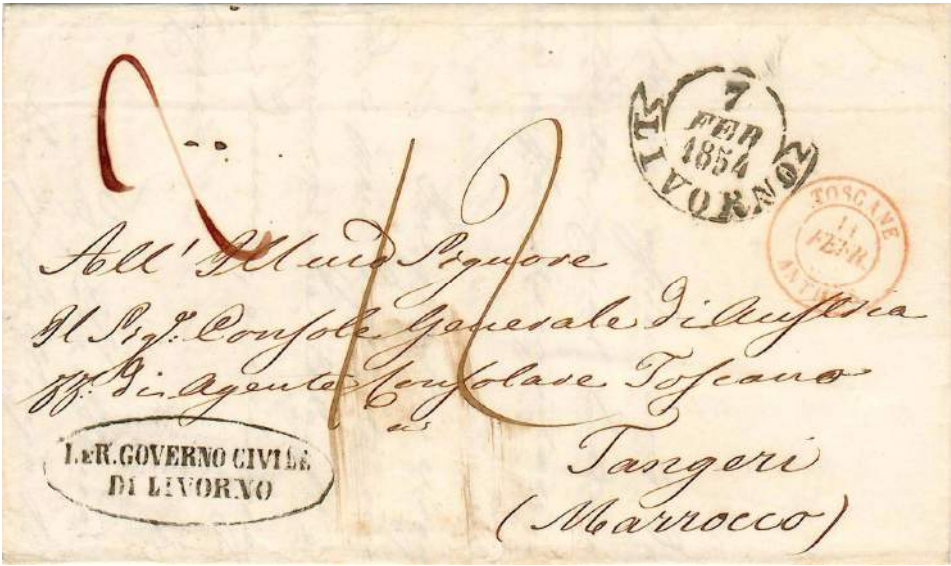 7
FEB
1854
LIVORNO
TOSCANE
11
FEVR.
12
All' Illmo Signore
Il Sigr. Console Generale di Austria
ff. di Agente Consolare Toscano
in
Tangeri
(Marrocco)
I. E R. GOVERNO CIVILE
DI LIVORNO